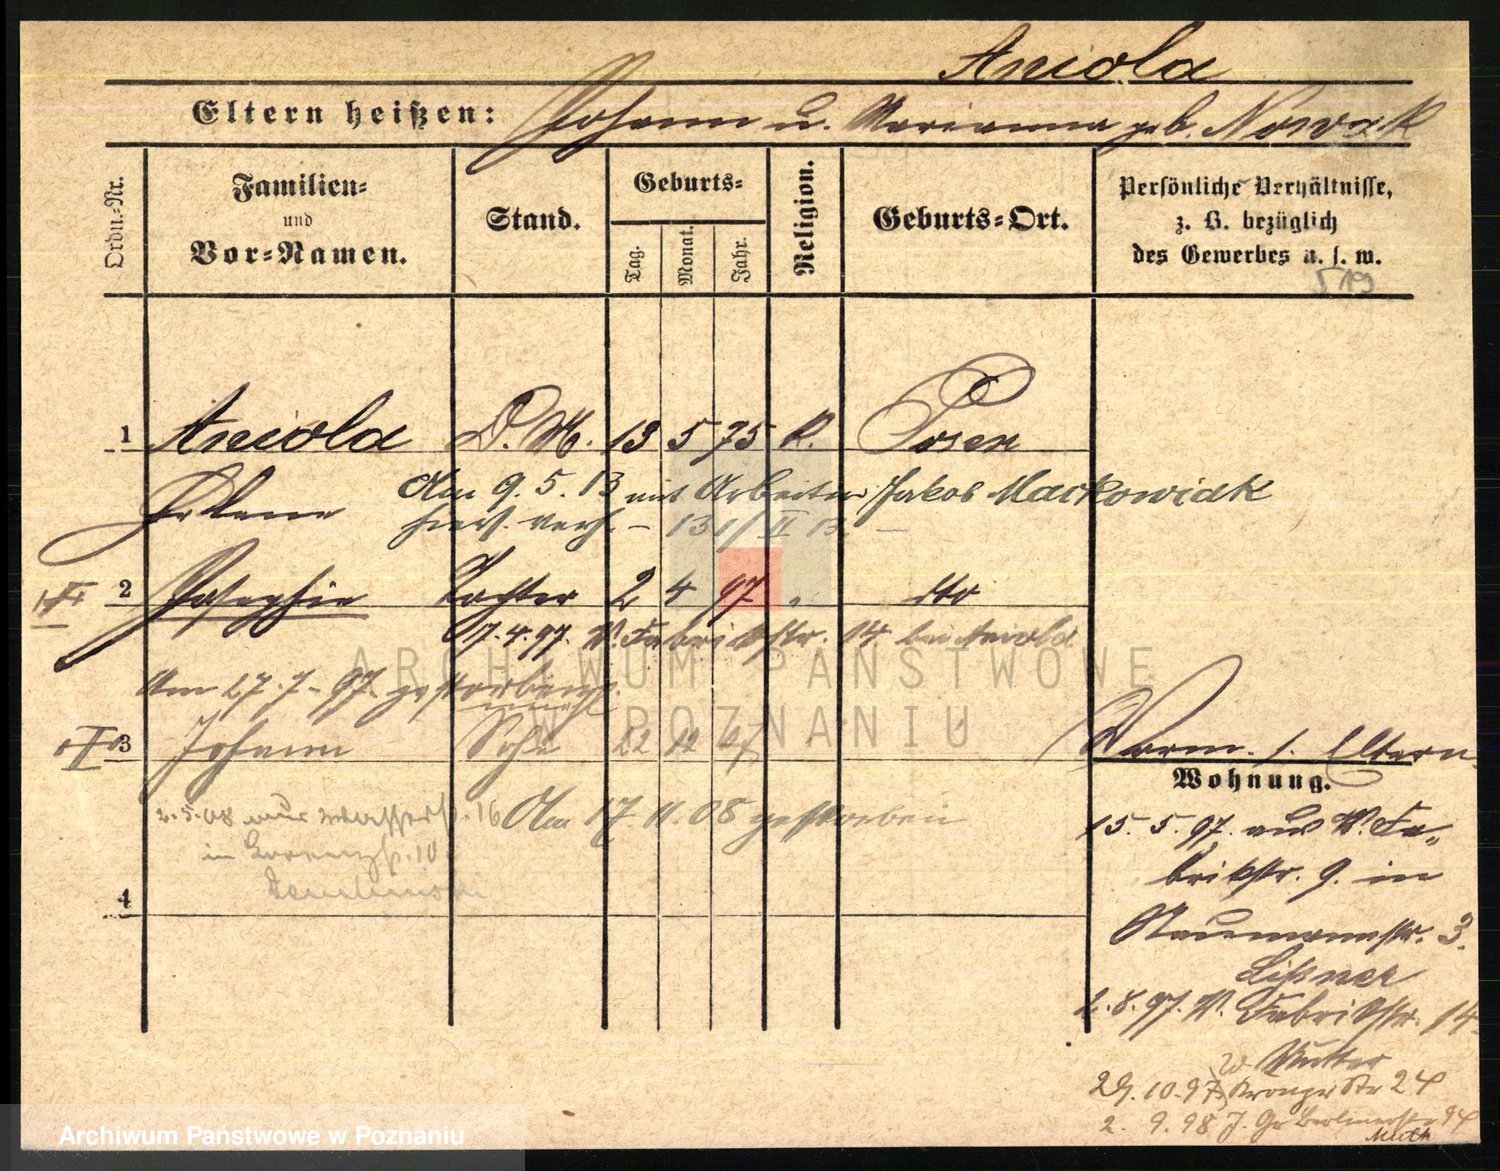 Aniola
Eltern heißen: Johann u. Marianna geb. Nowak
Ordn.-Nr.
Familien- und Vor-Namen.
Stand.
Geburts-
Tag. Monat. Jahr.
Religion.
Geburts-Ort.
Persönliche Verhältnisse, z. B. bezüglich des Gewerbes u. s. w.
1 Aniola D. M. 13 5 75 K. Posen
Helene
Am 9. 5. 13 mit Arbeiter Jakob Mackowiak
hier verh. – 131/II 13. –
2 Josephie Tochter 2 4 97 " dto
17. 4. 97. W. Fabrikstr. 14. bei Aniola
Am 27. 7. 97. gestorben
3 Johann Sohn 22 12 97
Am 17. 11. 08 gestorben
2. 5. 08 aus 16
in 10
4
Worm. s. Eltern.
Wohnung.
15. 5. 97. aus W. Fa-
brikstr. 9. in
Naumannstr. 3.
Lißner
2. 8. 97. W. Fabrikstr. 14
Mutter
29. 10. 97 Str 24
2. 9. 98 J. Gr Berlinerstr 94
Muth
ARCHIWUM PAŃSTWOWE
W POZNANIU
Archiwum Państwowe w Poznaniu